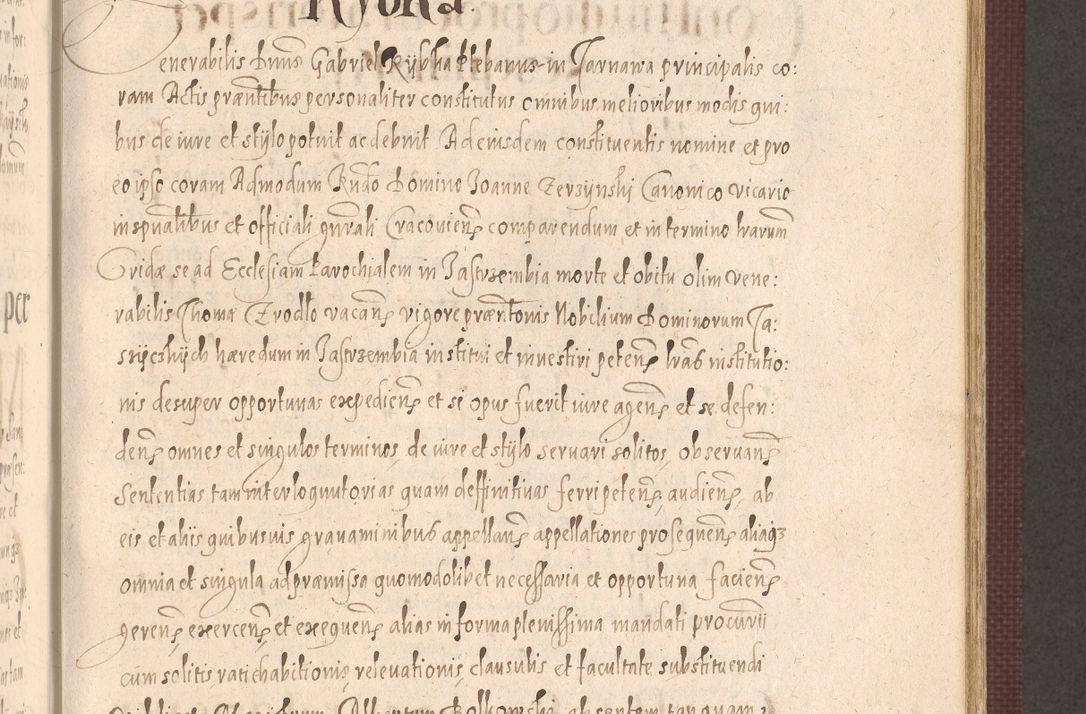 Rybka.
Venerabilis Dnus Gabriel Rybka Plebanus in Tarnawa principalis co:
ram Actis præntibus personaliter constitutus omnibus melioribus modis qui:
bus de iure et stylo potuit ac debuit Ad eiusdem constituentis nomine et pro
eo ipso coram Admodum Rndo Domino Joanne Zerzynski Canonico vicario
in spualibus et officiali gnrali Cracouien comparendum et in termino lrarum
Cridæ se ad Ecclesiam Parochialem in Jastrzembia morte et obitu olim vene:
rabilis Thomæ Zrodlo vacan vigore præntonis Nobilium Dominorum Ja:
hæredum in Jastrzembia institui et investiri peten lras institutio:
nis desuper opportunas expedien et si opus fuerit iure agen et se defen:
den omnes et singulos terminos de iure et stylo servari solitos observan
Sententias tam interloquutorias quam deffinitivas ferri peten audien, ab
eis et aliis quibusuis gravaminibus appellan appellationes prosequen aliaq3
omnia et singula ad præmissa quomodolibet necessaria et opportuna facien
geren exercen et exequen alias in forma plenissima mandati procurii
cum solitis ratihabitionis relevationis clausulis et facultate substituendi
Albertum absentem tanquam